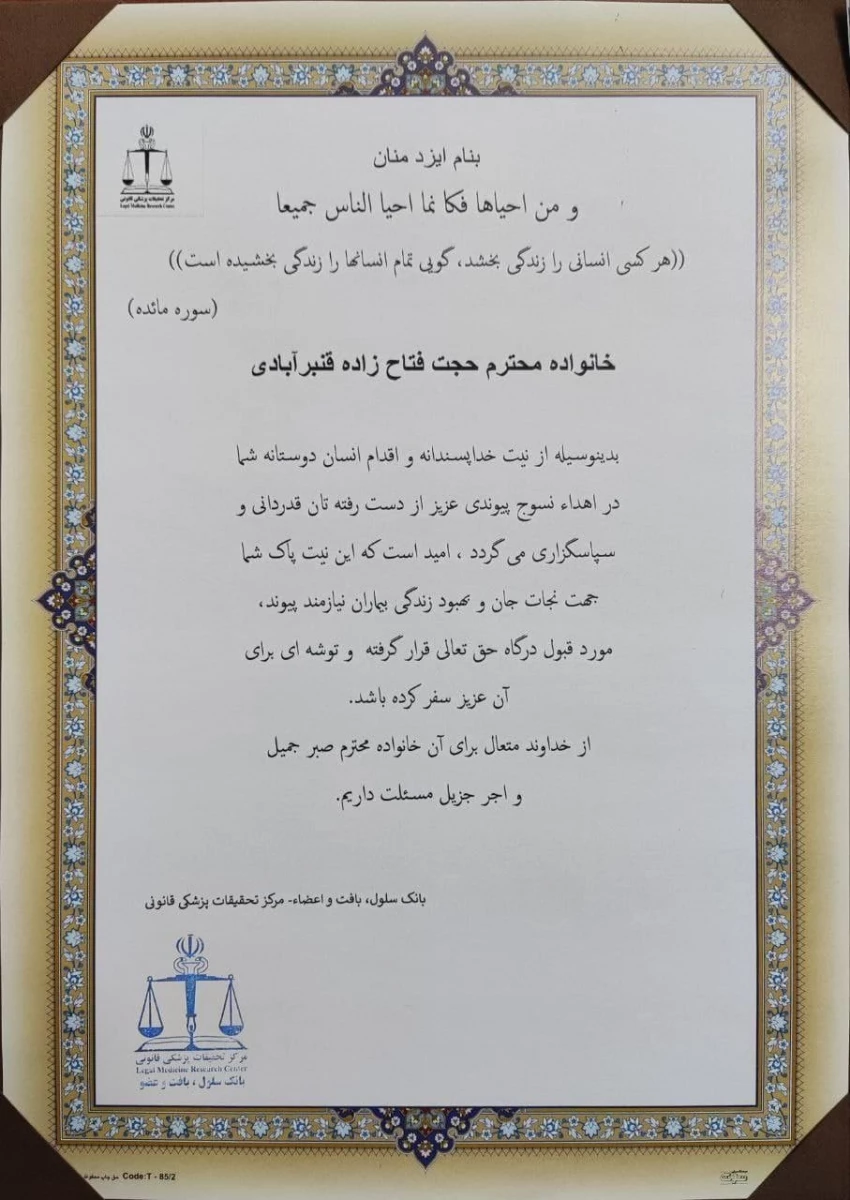 مرکز تحقیقات پزشکی قانونی
Legal Medicine Research Center
بنام ایزد منان
و من احیاها فکا نما احیا الناس جمیعا
((هر کسی انسانی را زندگی بخشد، گویی تمام انسانها را زندگی بخشیده است))
(سوره مائده)
خانواده محترم حجت فتاح زاده قنبرآبادی
بدینوسیله از نیت خداپسندانه و اقدام انسان دوستانه شما
در اهداء نسوج پیوندی عزیز از دست رفته تان قدردانی و
سپاسگزاری می گردد ، امید است که این نیت پاک شما
جهت نجات جان و بهبود زندگی بیماران نیازمند پیوند،
مورد قبول درگاه حق تعالی قرار گرفته و توشه ای برای
آن عزیز سفر کرده باشد.
از خداوند متعال برای آن خانواده محترم صبر جمیل
و اجر جزیل مسئلت داریم.
بانک سلول، بافت و اعضاء- مرکز تحقیقات پزشکی قانونی
مرکز تحقیقات پزشکی قانونی
Legal Medicine Research Center
بانک سلول ، بافت و عضو
Code:T - 85/2 حق چاپ محفوظ